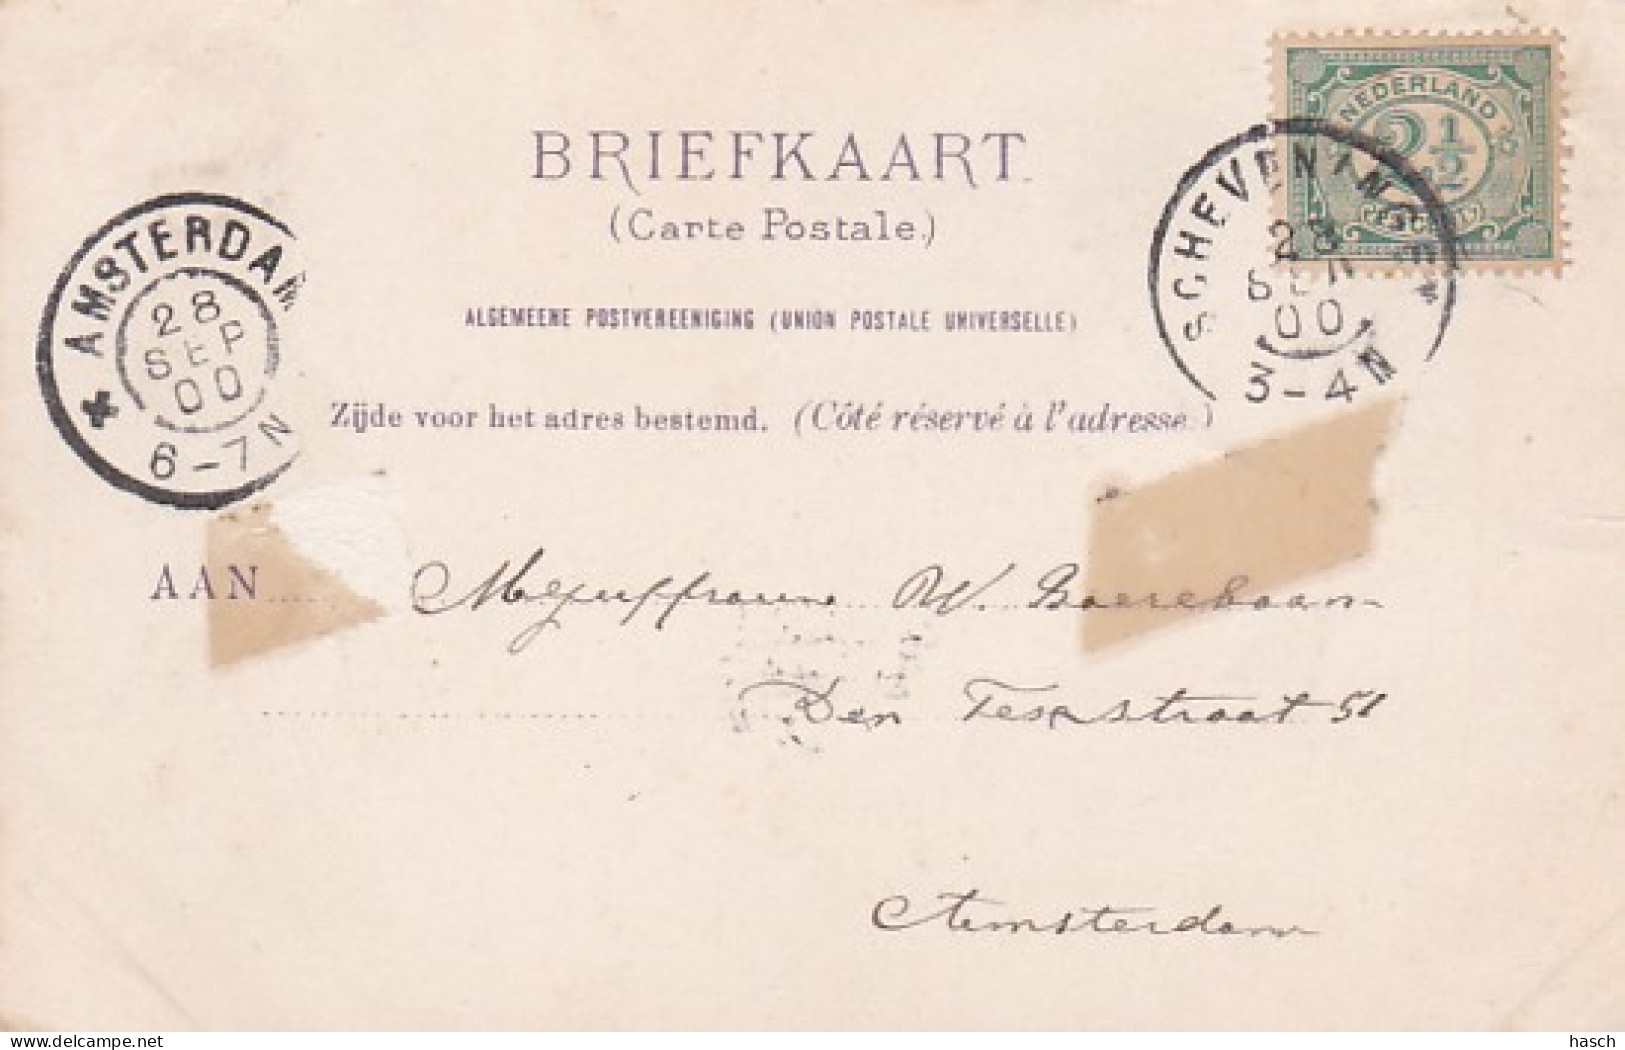 BRIEFKAART.
(Carte Postale.)
ALGEMEENE POSTVEREENIGING (UNION POSTALE UNIVERSELLE)
Zijde voor het adres bestemd. (Côté réservé à l'adresse.)
NEDERLAND
2½
SCHEVENINGEN
28
SEP
00
3-4N
AMSTERDAM
28
SEP
00
6-7N
AAN Mejuffrouw W. Boereboom
Den Texstraat 51
Amsterdam
delcampe.net
hasch